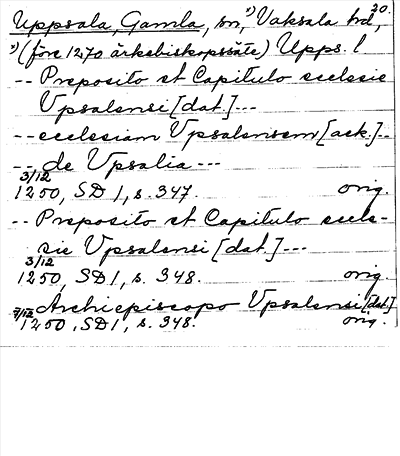 20.
Uppsala, Gamla, sn, 1) Vaksala hd,
1) (före 1270 ärkebiskopssäte) Upps. l
-- Preposito et Capitulo ecclesie
Vpsalensi [dat.] ---
-- ecclesiam Vpsalensem [ack.] --
-- de Vpsalia ---
3/12
1250, SD 1, s. 347. orig.
-- Preposito et Capitulo eccle-
sie Vpsalensi [dat.] ---
3/12
1250, SD 1, s. 348. orig.
-- Archiepiscopo Vpsalensi [dat.]
7/12
1250, SD 1, s. 348. orig.